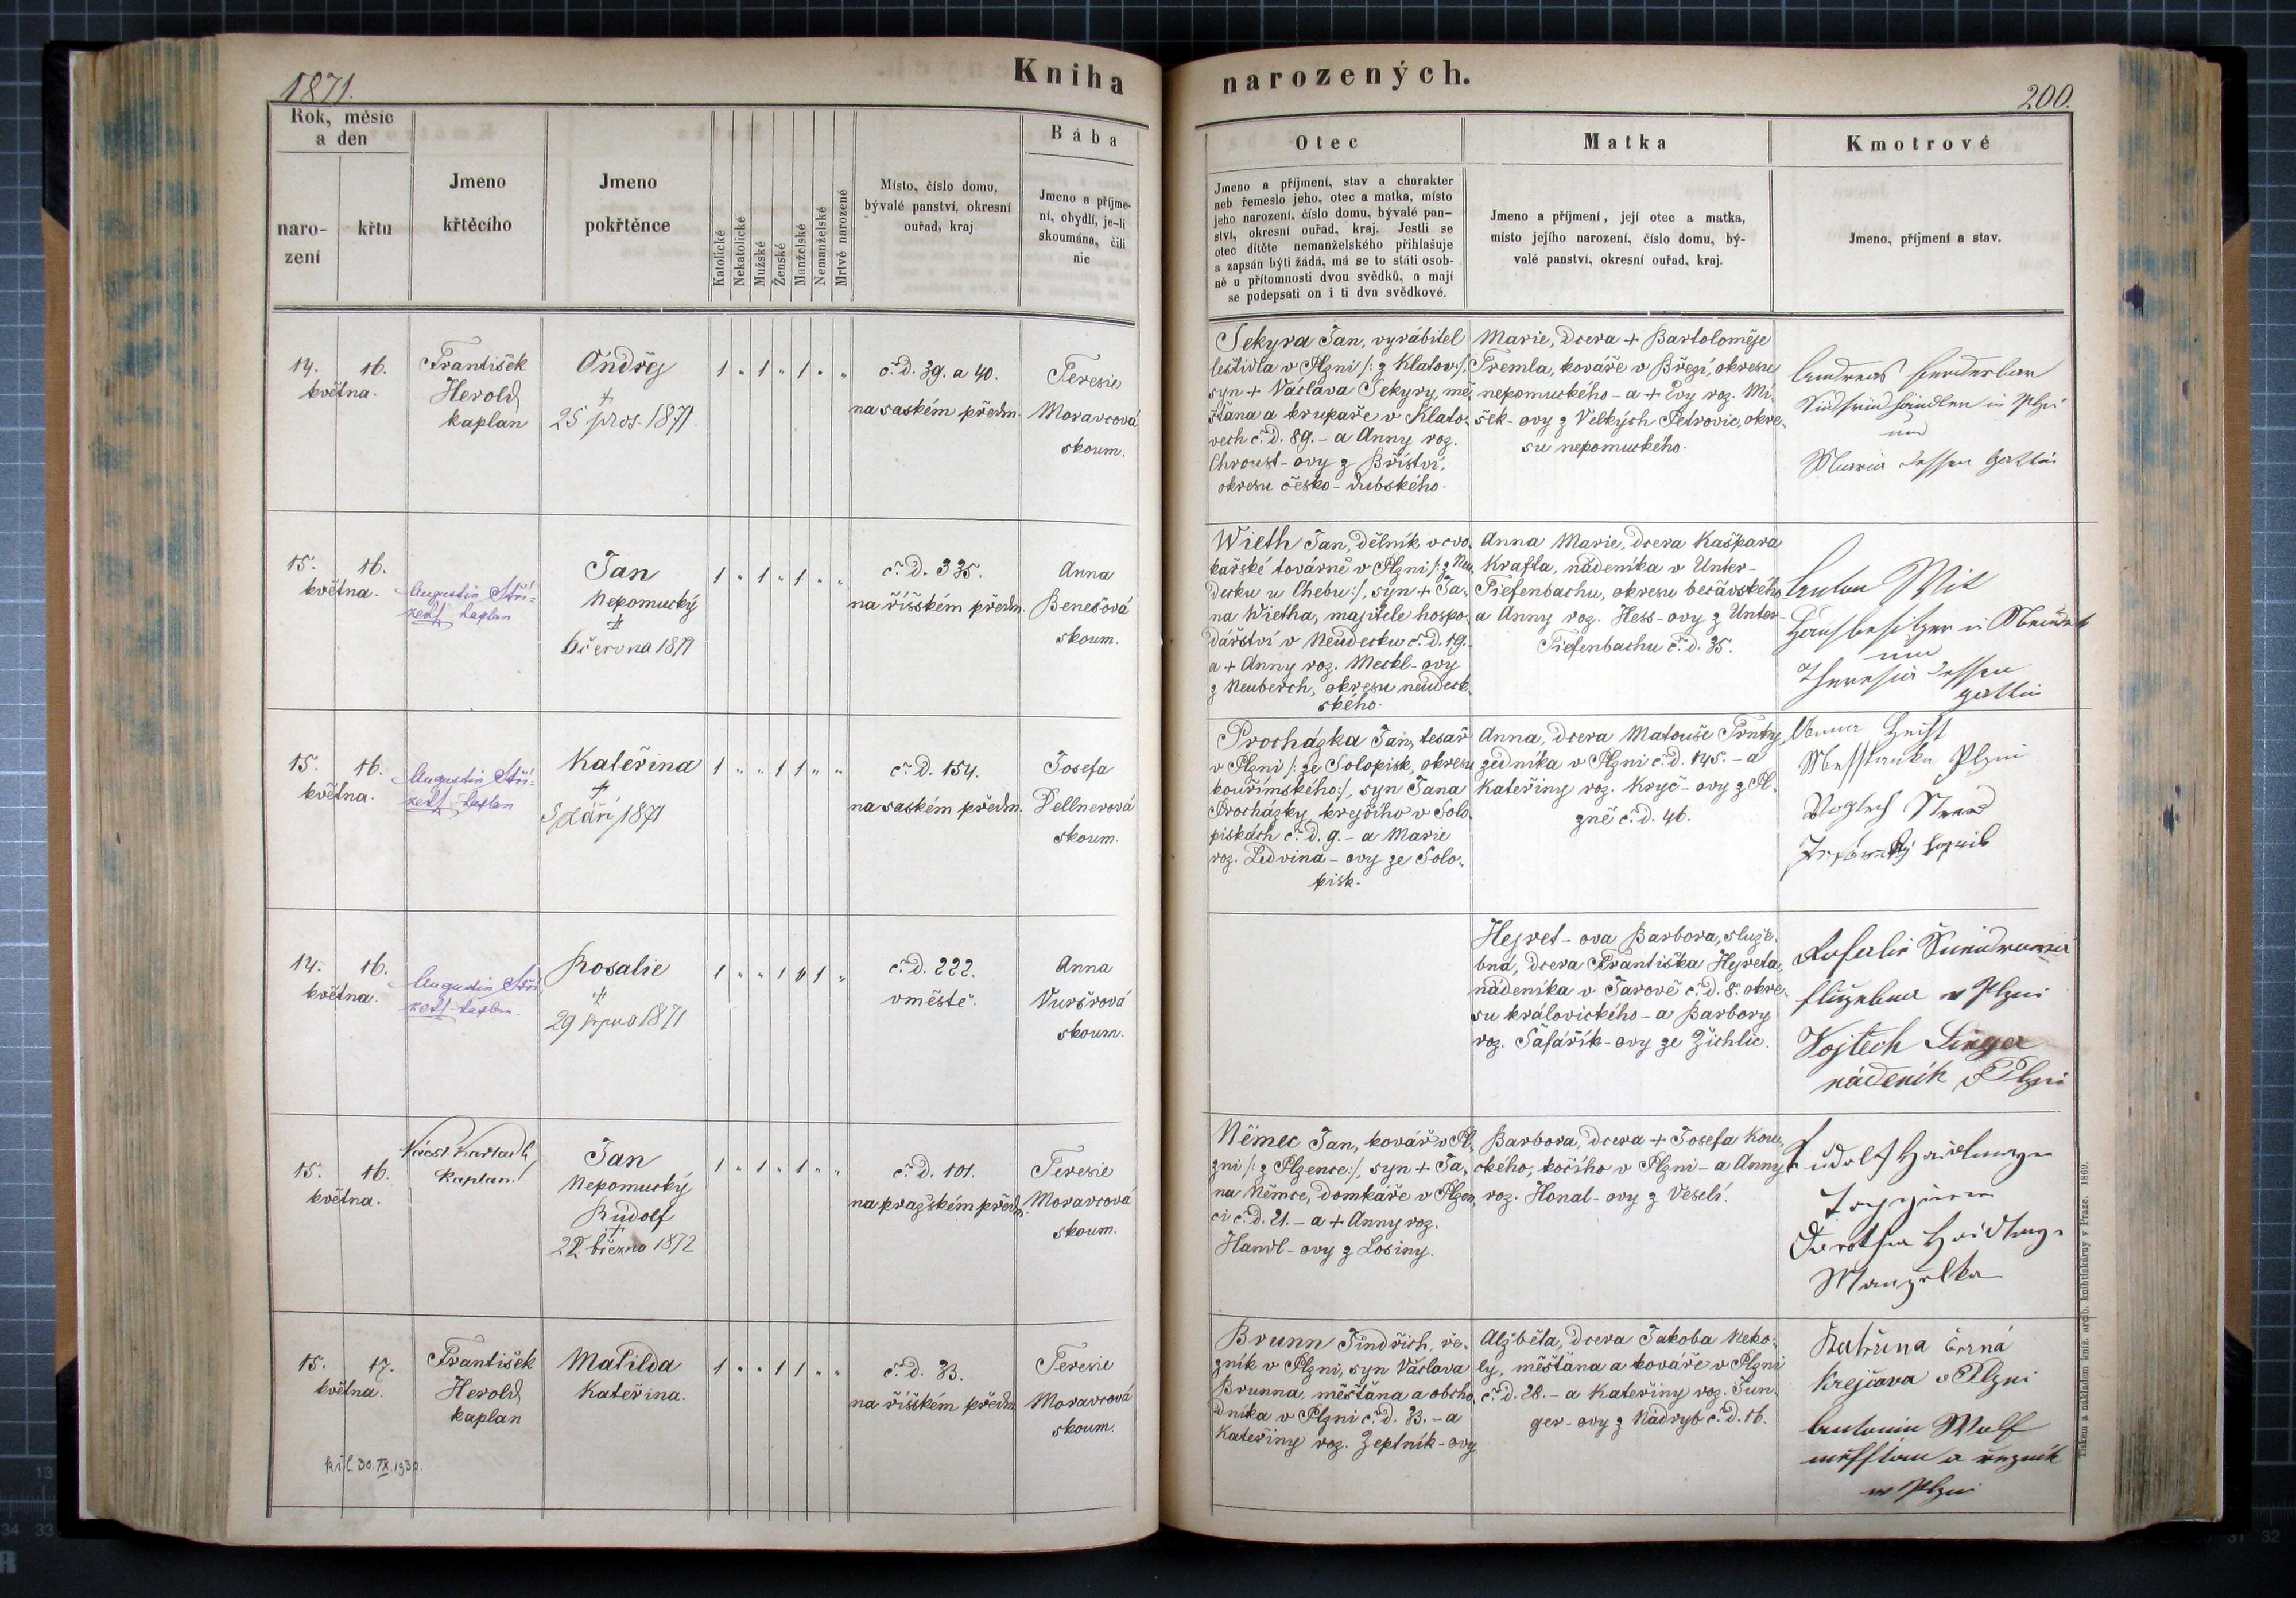 1871.
Kniha
Rok, měsíc
a den
naro-
zení
křtu
Jmeno
křtěcího
Jmeno
pokřtěnce
Katolické
Nekatolické
Mužské
Ženské
Manželské
Nemanželské
Mrtvě narozené
Místo, číslo domu,
bývalé panství, okresní
ouřad, kraj
Bába
Jmeno a příjme-
ní, obydlí, je-li
skoumána, čili
nic
14. 16.
května.
František
Herold
kaplan
Ondřej
+
25 pros. 1871.
1 " 1 " 1 " "
č. d. 39. a 40.
na saském předm.
Teresie
Moravcová
skoum.
15. 16.
května.
Augustin Stří-
kaplan
Jan
Nepomucký
+
6 června 1871
1 " 1 " 1 " "
č. d. 335.
na říšském předm.
Anna
Benešová
skoum.
15. 16.
května.
Augustin Stří-
kaplan
Kateřina
+
5 září 1871
1 " " 1 1 " "
č. d. 154.
na saském předm.
Josefa
Pellnerová
skoum.
14. 16.
května.
Augustin Stří-
kaplan.
Rosalie
+
29 srpna 1871
1 " " 1 " 1 "
č. d. 222.
v městě.
Anna
Vuršrová
skoum.
15. 16.
května.
kaplan.
Jan
Nepomucký
Rudolf
+
22 března 1872
1 " 1 " 1 " "
č. d. 101.
na pražském předm.
Teresie
Moravcová
skoum.
15. 17.
května.
František
Herold
kaplan
30. IX. 1930.
Matilda
Kateřina.
1 " " 1 1 " "
č. d. 33.
na říšském předm.
Teresie
Moravcová
skoum.
narozených.
200.
Otec
Jmeno a příjmení, stav a charakter
neb řemeslo jeho, otec a matka, místo
jeho narození, číslo domu, bývalé pan-
ství, okresní ouřad, kraj. Jestli se
otec dítěte nemanželského přihlašuje
a zapsán býti žádá, má se to státi osob-
ně u přítomnosti dvou svědků, a mají
se podepsati on i ti dva svědkové.
Matka
Jmeno a příjmení, její otec a matka,
místo jejího narození, číslo domu, bý-
valé panství, okresní ouřad, kraj.
Kmotrové
Jmeno, příjmení a stav.
Sekyra Jan, vyrábitel
leštidla v Plzni /: z Klatov :/,
syn + Václava Sekyry, mě-
šťana a krupaře v Klato-
vech č. d. 89. - a Anny roz.
Chroust-ovy z Bříství,
okresu česko-dubského.
Marie, dcera + Bartoloměje
Tremla, kováře v Březí, okresu
nepomuckého - a + Evy roz. Mi-
šek-ovy z Velkých Petrovic, okre-
su nepomuckého.
Andreas
in
und
Maria dessen Gattin
Wieth Jan, dělník v cvo-
kařské továrně v Plzni /: z Neu-
decku u Chebu :/, syn + Ja-
na Wietha, majitele hospo-
dářství v Neudecku č. d. 19.
a + Anny roz. Meckl-ovy
z Neuberch, okresu neudeck-
ského.
Anna Marie, dcera Kašpara
Krafta, nádeníka v Unter-
Tiefenbachu, okresu bečávského
a Anny roz. Hess-ovy z Unter-
Tiefenbachu č. d. 35.
Anton
Hausbesitzer in
und
Theresia dessen
Gattin
Procházka Jan, tesař
v Plzni /: ze Solopisk, okresu
kouřimského :/, syn Jana
Procházky, krejčího v Solo-
piskách č. d. 9. - a Marie
roz. Ledvina-ovy ze Solo-
pisk.
Anna, dcera Matouše Trnky,
zedníka v Plzni č. d. 145. - a
Kateřiny roz. Kryč-ovy z Pl-
zně č. d. 46.
Anna
Plzni
Hejret-ova Barbora, služe-
bná, dcera Františka Hejreta,
nádeníka v Jarově č. d. 8. okre-
su královického - a Barbory
roz. Šafařík-ovy ze Žichlic.
Rosalie
v Plzni
Vojtěch Singer
nádeník v Plzni
Němec Jan, kovář v Pl-
zni /: z Plzence :/, syn + Ja-
na Němce, domkaře v Plzen-
ci č. d. 21. - a + Anny roz.
Handl-ovy z Losiny.
Barbora, dcera + Josefa Kou-
ckého, kočího v Plzni - a Anny
roz. Honal-ovy z Veselí.
Rudolf
Manželka
Brunn Jindřich, ře-
zník v Plzni, syn Václava
Brunna, měšťana a obcho-
dníka v Plzni č. d. 33. - a
Kateřiny roz. Zeptník-ovy
Alžběta, dcera Jakoba Neko-
ly, měšťana a kováře v Plzni
č. d. 28. - a Kateřiny roz. Jun-
ger-ovy z Nadryb č. d. 16.
Kateřina Černá
Krejčova v Plzni
Antonín Wolf
a řezník
v Plzni
Tiskem a nákladem kníž. arcib. knihtiskárny v Praze. 1869.